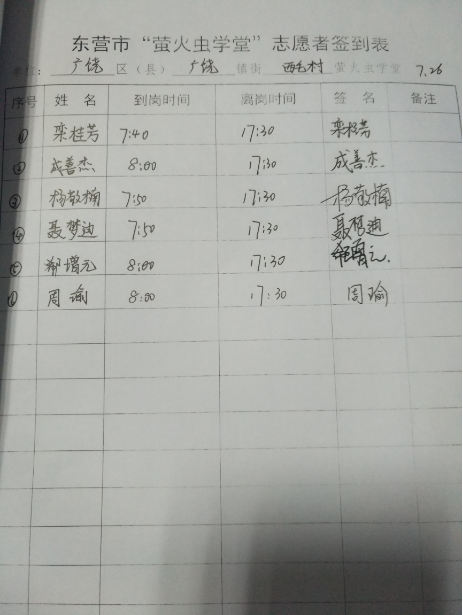 东营市“萤火虫学堂”志愿者签到表
单位: 广饶 区（县） 广饶 镇街 西毛村 萤火虫学堂 7.26
序号 姓 名 到岗时间 离岗时间 签 名 备注
① 栾桂芳 7:40 17:30 栾桂芳
② 成善杰 8:00 17:30 成善杰
③ 杨敬楠 7:50 17:30 杨敬楠
④ 聂梦迪 7:50 17:30 聂梦迪
⑤ 郑增元 8:00 17:30 郑增元.
⑥ 周瑜 8:00 17:30 周瑜